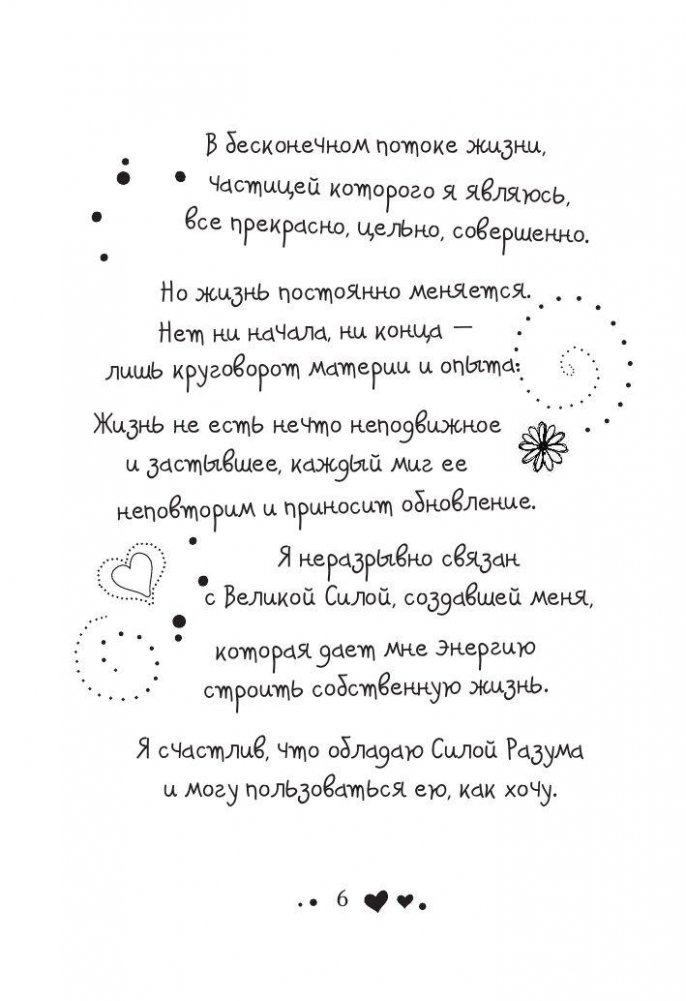 В бесконечном потоке жизни,
частицей которого я являюсь,
все прекрасно, цельно, совершенно.
Но жизнь постоянно меняется.
Нет ни начала, ни конца —
лишь круговорот материи и опыта.
Жизнь не есть нечто неподвижное
и застывшее, каждый миг ее
неповторим и приносит обновление.
Я неразрывно связан
с Великой Силой, создавшей меня,
которая дает мне энергию
строить собственную жизнь.
Я счастлив, что обладаю Силой Разума
и могу пользоваться ею, как хочу.
6